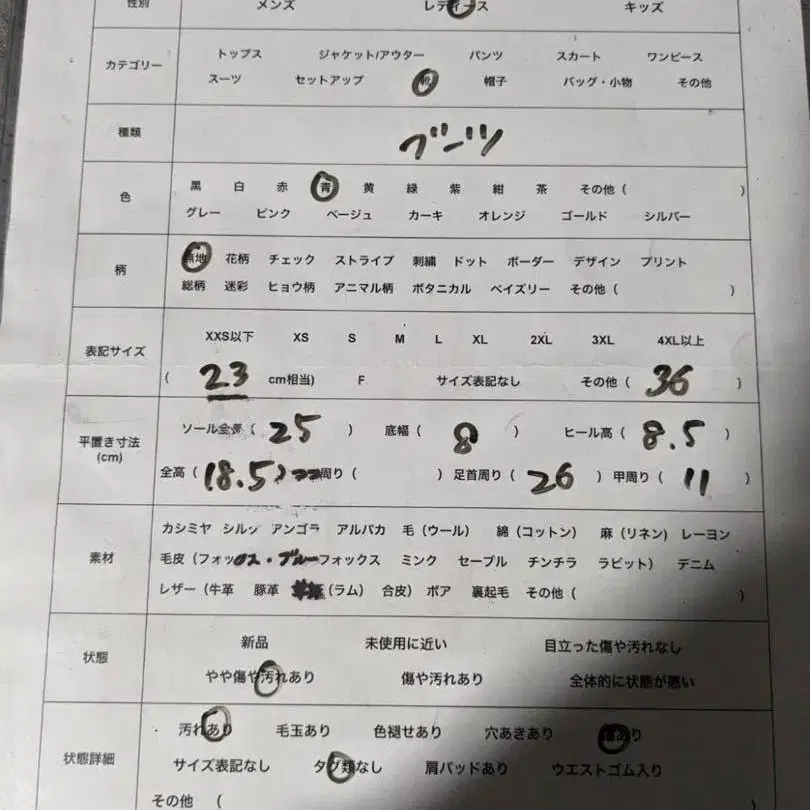 性別 メンズ レディース キッズ
カテゴリー
トップス ジャケット/アウター パンツ スカート ワンピース
スーツ セットアップ 靴 帽子 バッグ・小物 その他
種類 ブーツ
色
黒 白 赤 青 黄 緑 紫 紺 茶 その他 ( )
グレー ピンク ベージュ カーキ オレンジ ゴールド シルバー
柄
無地 花柄 チェック ストライプ 刺繍 ドット ボーダー デザイン プリント
総柄 迷彩 ヒョウ柄 アニマル柄 ボタニカル ペイズリー その他 ( )
表記サイズ
XXS以下 XS S M L XL 2XL 3XL 4XL以上
( 23 cm相当) F サイズ表記なし その他 ( 36 )
平置き寸法
(cm)
ソール全長 ( 25 ) 底幅 ( 8 ) ヒール高 ( 8.5 )
全高 ( 18.5 ) 周り ( ) 足首周り ( 26 ) 甲周り ( 11 )
素材
カシミヤ シルク アンゴラ アルパカ 毛 (ウール) 綿 (コットン) 麻 (リネン) レーヨン
毛皮 (フォックス・ブルーフォックス ミンク セーブル チンチラ ラビット) デニム
レザー (牛革 豚革 (ラム) 合皮) ボア 裏起毛 その他 ( )
状態
新品 未使用に近い 目立った傷や汚れなし
やや傷や汚れあり 傷や汚れあり 全体的に状態が悪い
状態詳細
汚れあり 毛玉あり 色褪せあり 穴あきあり 傷あり
サイズ表記なし タグ類なし 肩パッドあり ウエストゴム入り
その他 (